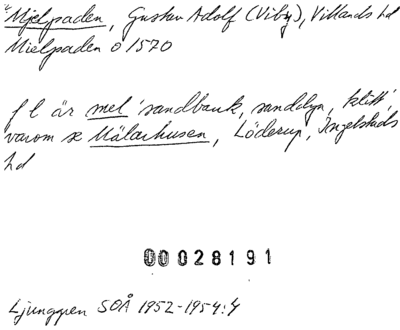 "Mjelpaden, Gustav Adolf (Viby), Villands hd
Mielpaden ö 1570
f l är mel 'sandbank, sanddyn, klitt',
varom se Mälarhusen, Löderup, Ingelstads
hd
00028191
Ljunggren SOÅ 1952-1954:4